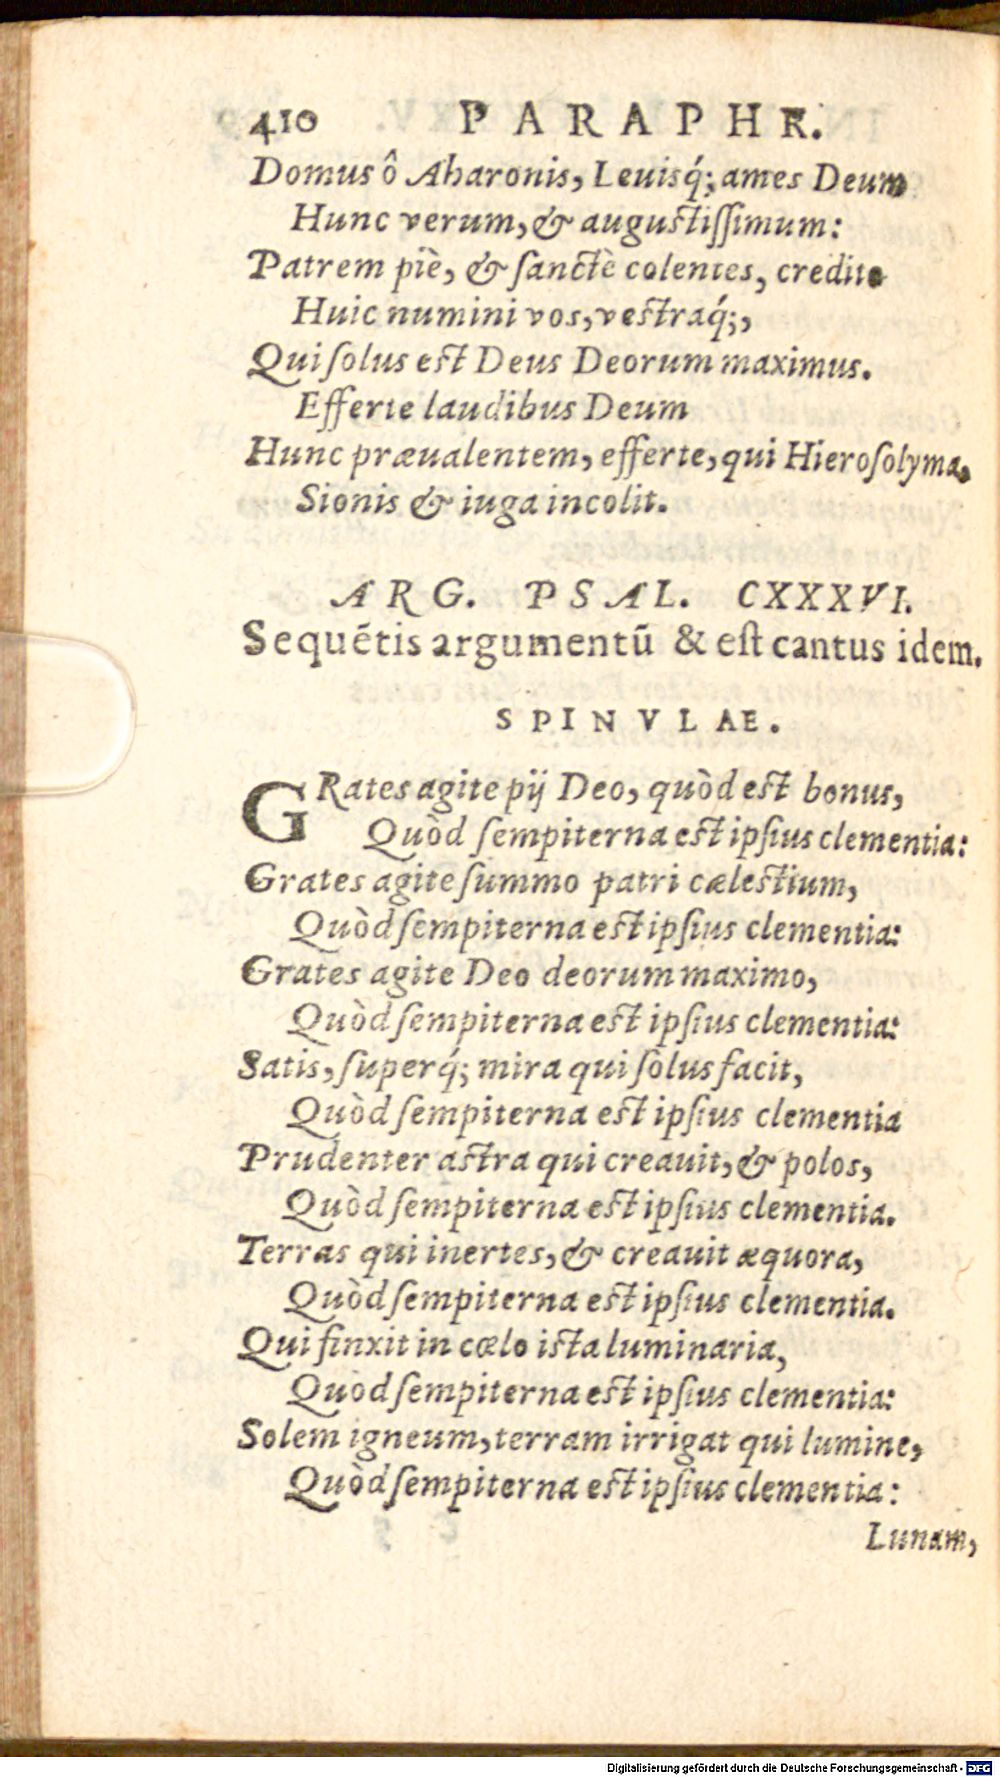 410 PARAPHR.
Domus ô Aharonis, Leuisq́; ames Deum
Hunc verum, & augustiſſimum:
Patrem piè, & ſanctè colentes, credite
Huic numini vos, vestraq́;,
Qui ſolus est Deus Deorum maximus.
Efferte laudibus Deum
Hunc præualentem, efferte, qui Hieroſolyma,
Sionis & iuga incolit.
ARG. PSAL. CXXXVI.
Sequẽtis argumentũ & eſt cantus idem.
SPINVLAE.
GRates agite pij Deo, quòd est bonus,
Quòd ſempiterna est ipſius clementia:
Grates agite ſummo patri cælestium,
Quòd ſempiterna est ipſius clementia:
Grates agite Deo deorum maximo,
Quòd ſempiterna est ipſius clementia:
Satis, ſuperq́; mira qui ſolus facit,
Quòd ſempiterna est ipſius clementia
Prudenter astra qui creauit, & polos,
Quòd ſempiterna est ipſius clementia.
Terras qui inertes, & creauit æquora,
Quòd ſempiterna est ipſius clementia.
Qui finxit in cœlo ista luminaria,
Quòd ſempiterna est ipſius clementia:
Solem igneum, terram irrigat qui lumine,
Quòd ſempiterna est ipſius clementia:
Lunam,
Digitalisierung gefördert durch die Deutsche Forschungsgemeinschaft - DFG